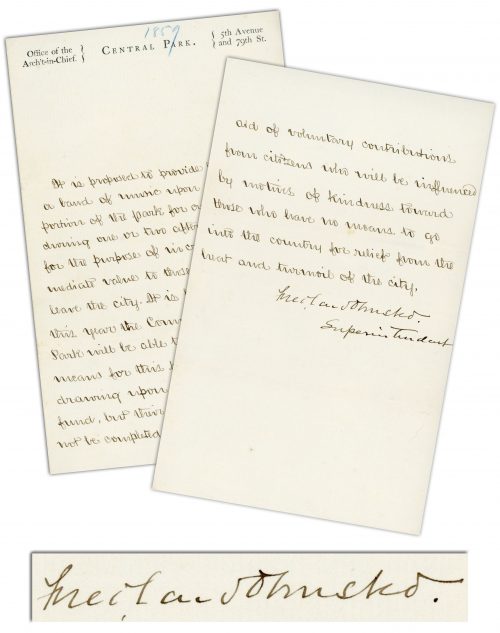 1859
Office of the
Arch't-in-Chief.
CENTRAL PARK.
5th Avenue
and 79th St.
It is proposed to provide
a band of music upon
portion of the Park for
during one or two
for the purpose of
mediate value to those
leave the city. It is
this year the
Park will be able
means for this
drawing upon
fund, but their
not be completed
aid of voluntary contributions
from citizens who will be influenced
by motives of kindness toward
those who have no means to go
into the country for relief from the
heat and turmoil of the city.
Fred. Law Olmsted.
Superintendent
Fred. Law Olmsted.